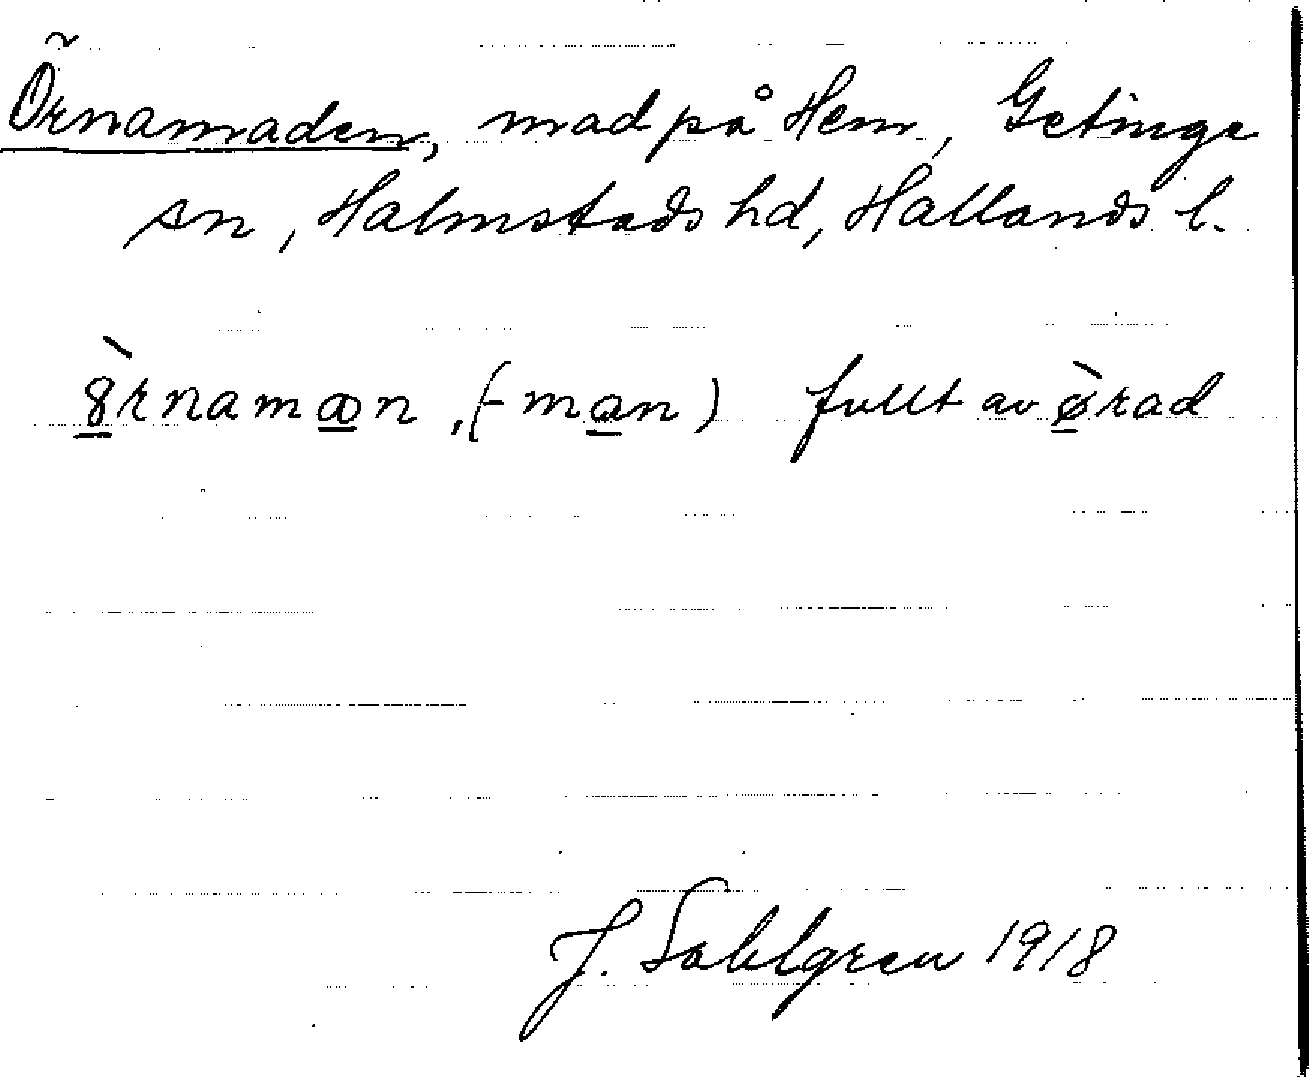 Örnamaden, mad på Hem, Getinge
sn, Halmstads hd, Hallands l.
8̱̀rnama̱n, (-ma̱n) fullt av ø̱̀rad
J. Sahlgren 1918